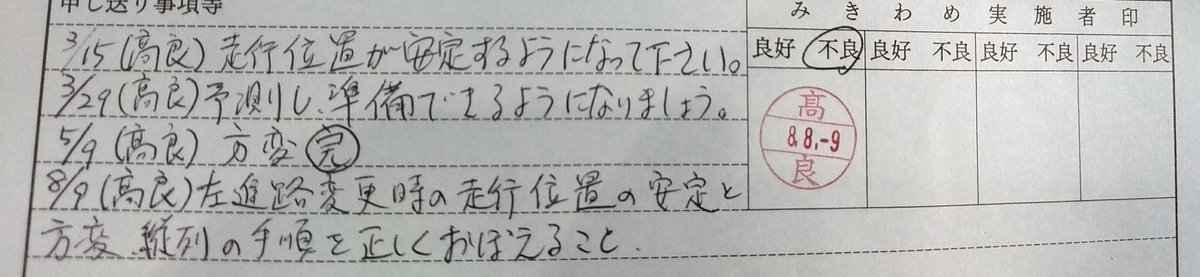 申し送り事項等
みきわめ実施者印
良好 不良 良好 不良 良好 不良 良好 不良
3/15(高良)走行位置が安定するようになって下さい。
3/29(高良)予測し、準備できるようになりましょう。
5/9(高良)方変 完
8/9(高良)左進路変更時の走行位置の安定と
方変、縦列の手順を正しくおぼえること。
高
8.8.-9
良